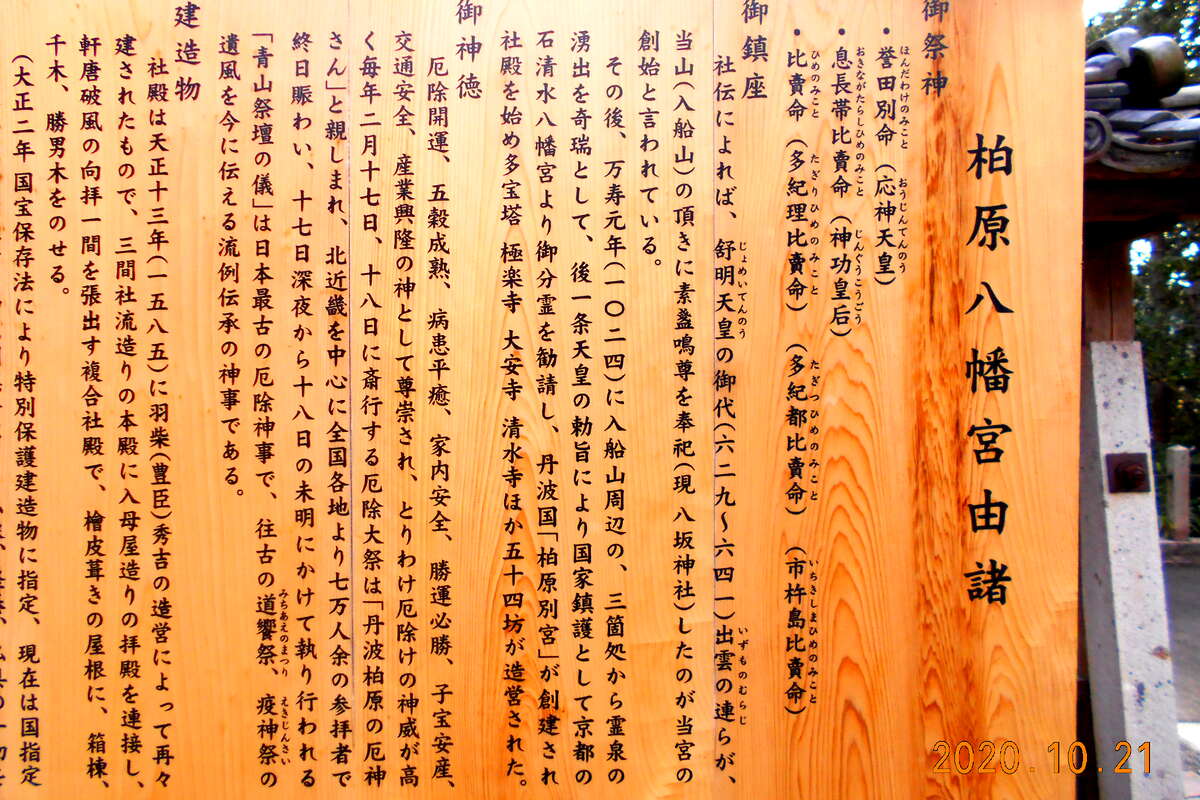 柏原八幡宮由諸
御祭神
・誉田別命（応神天皇）
ほんだわけのみこと おうじんてんのう
・息長帯比賣命（神功皇后）
おきながたらしひめのみこと じんぐうこうごう
・比賣命（多紀理比賣命）（多紀都比賣命）（市杵島比賣命）
ひめのみこと たぎりひめのみこと たぎつひめのみこと いちきしまひめのみこと
御鎮座
社伝によれば、舒明天皇の御代（六二九～六四一）出雲の連らが、
じょめいてんのう いずものむらじ
当山（入船山）の頂きに素盞鳴尊を奉祀（現 八坂神社）したのが当宮の
創始と言われている。
その後、万寿元年（一〇二四）に入船山周辺の、三箇処から霊泉の
湧出を奇瑞として、後一条天皇の勅旨により国家鎮護として京都の
石清水八幡宮より御分霊を勧請し、丹波国「柏原別宮」が創建され
社殿を始め多宝塔 極楽寺 大安寺 清水寺ほか五十四坊が造営された。
御神徳
厄除開運、五穀成熟、病患平癒、家内安全、勝運必勝、子宝安産、
交通安全、産業興隆の神として尊崇され、とりわけ厄除けの神威が高
く毎年二月十七日、十八日に斎行する厄除大祭は「丹波柏原の厄神
さん」と親しまれ、北近畿を中心に全国各地より七万人余の参拝者で
終日賑わい、十七日深夜から十八日の未明にかけて執り行われる
「青山祭壇の儀」は日本最古の厄除神事で、往古の道饗祭、疫神祭の
みちあえのまつり えきじんさい
遺風を今に伝える流例伝承の神事である。
建造物
社殿は天正十三年（一五八五）に羽柴（豊臣）秀吉の造営によって再々
建されたもので、三間社流造りの本殿に入母屋造りの拝殿を連接し、
軒唐破風の向拝一間を張出す複合社殿で、檜皮葺きの屋根に、箱棟、
千木、勝男木をのせる。
（大正二年国宝保存法により特別保護建造物に指定、現在は国指定
2020.10.21